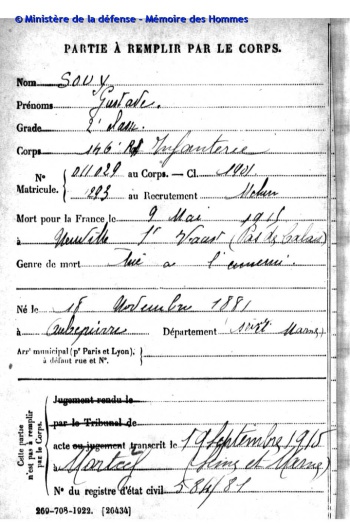 © Ministère de la défense - Mémoire des Hommes
PARTIE À REMPLIR PAR LE CORPS.
Nom SOUY
Prénoms Gustave.
Grade 2e classe.
Corps 146e Rt Infanterie
N° Matricule. { 011029 au Corps. — Cl. 1901
1293 au Recrutement Melun
Mort pour la France le 9 Mai 1915
à Neuville St Vaast (Pas de Calais)
Genre de mort tué a l'ennemi.
Né le 18 Novembre 1881
à Aubepierre Département Seine Marne
Arrt municipal (pr Paris et Lyon), à défaut rue et N°. }
Cette partie n'est pas à remplir par le Corps.
Jugement rendu le
par le Tribunal de
acte ou jugement transcrit le 19 Septembre 1915
à (Seine et Marne)
N° du registre d'état civil 584/81
269-708-1922. [26434]